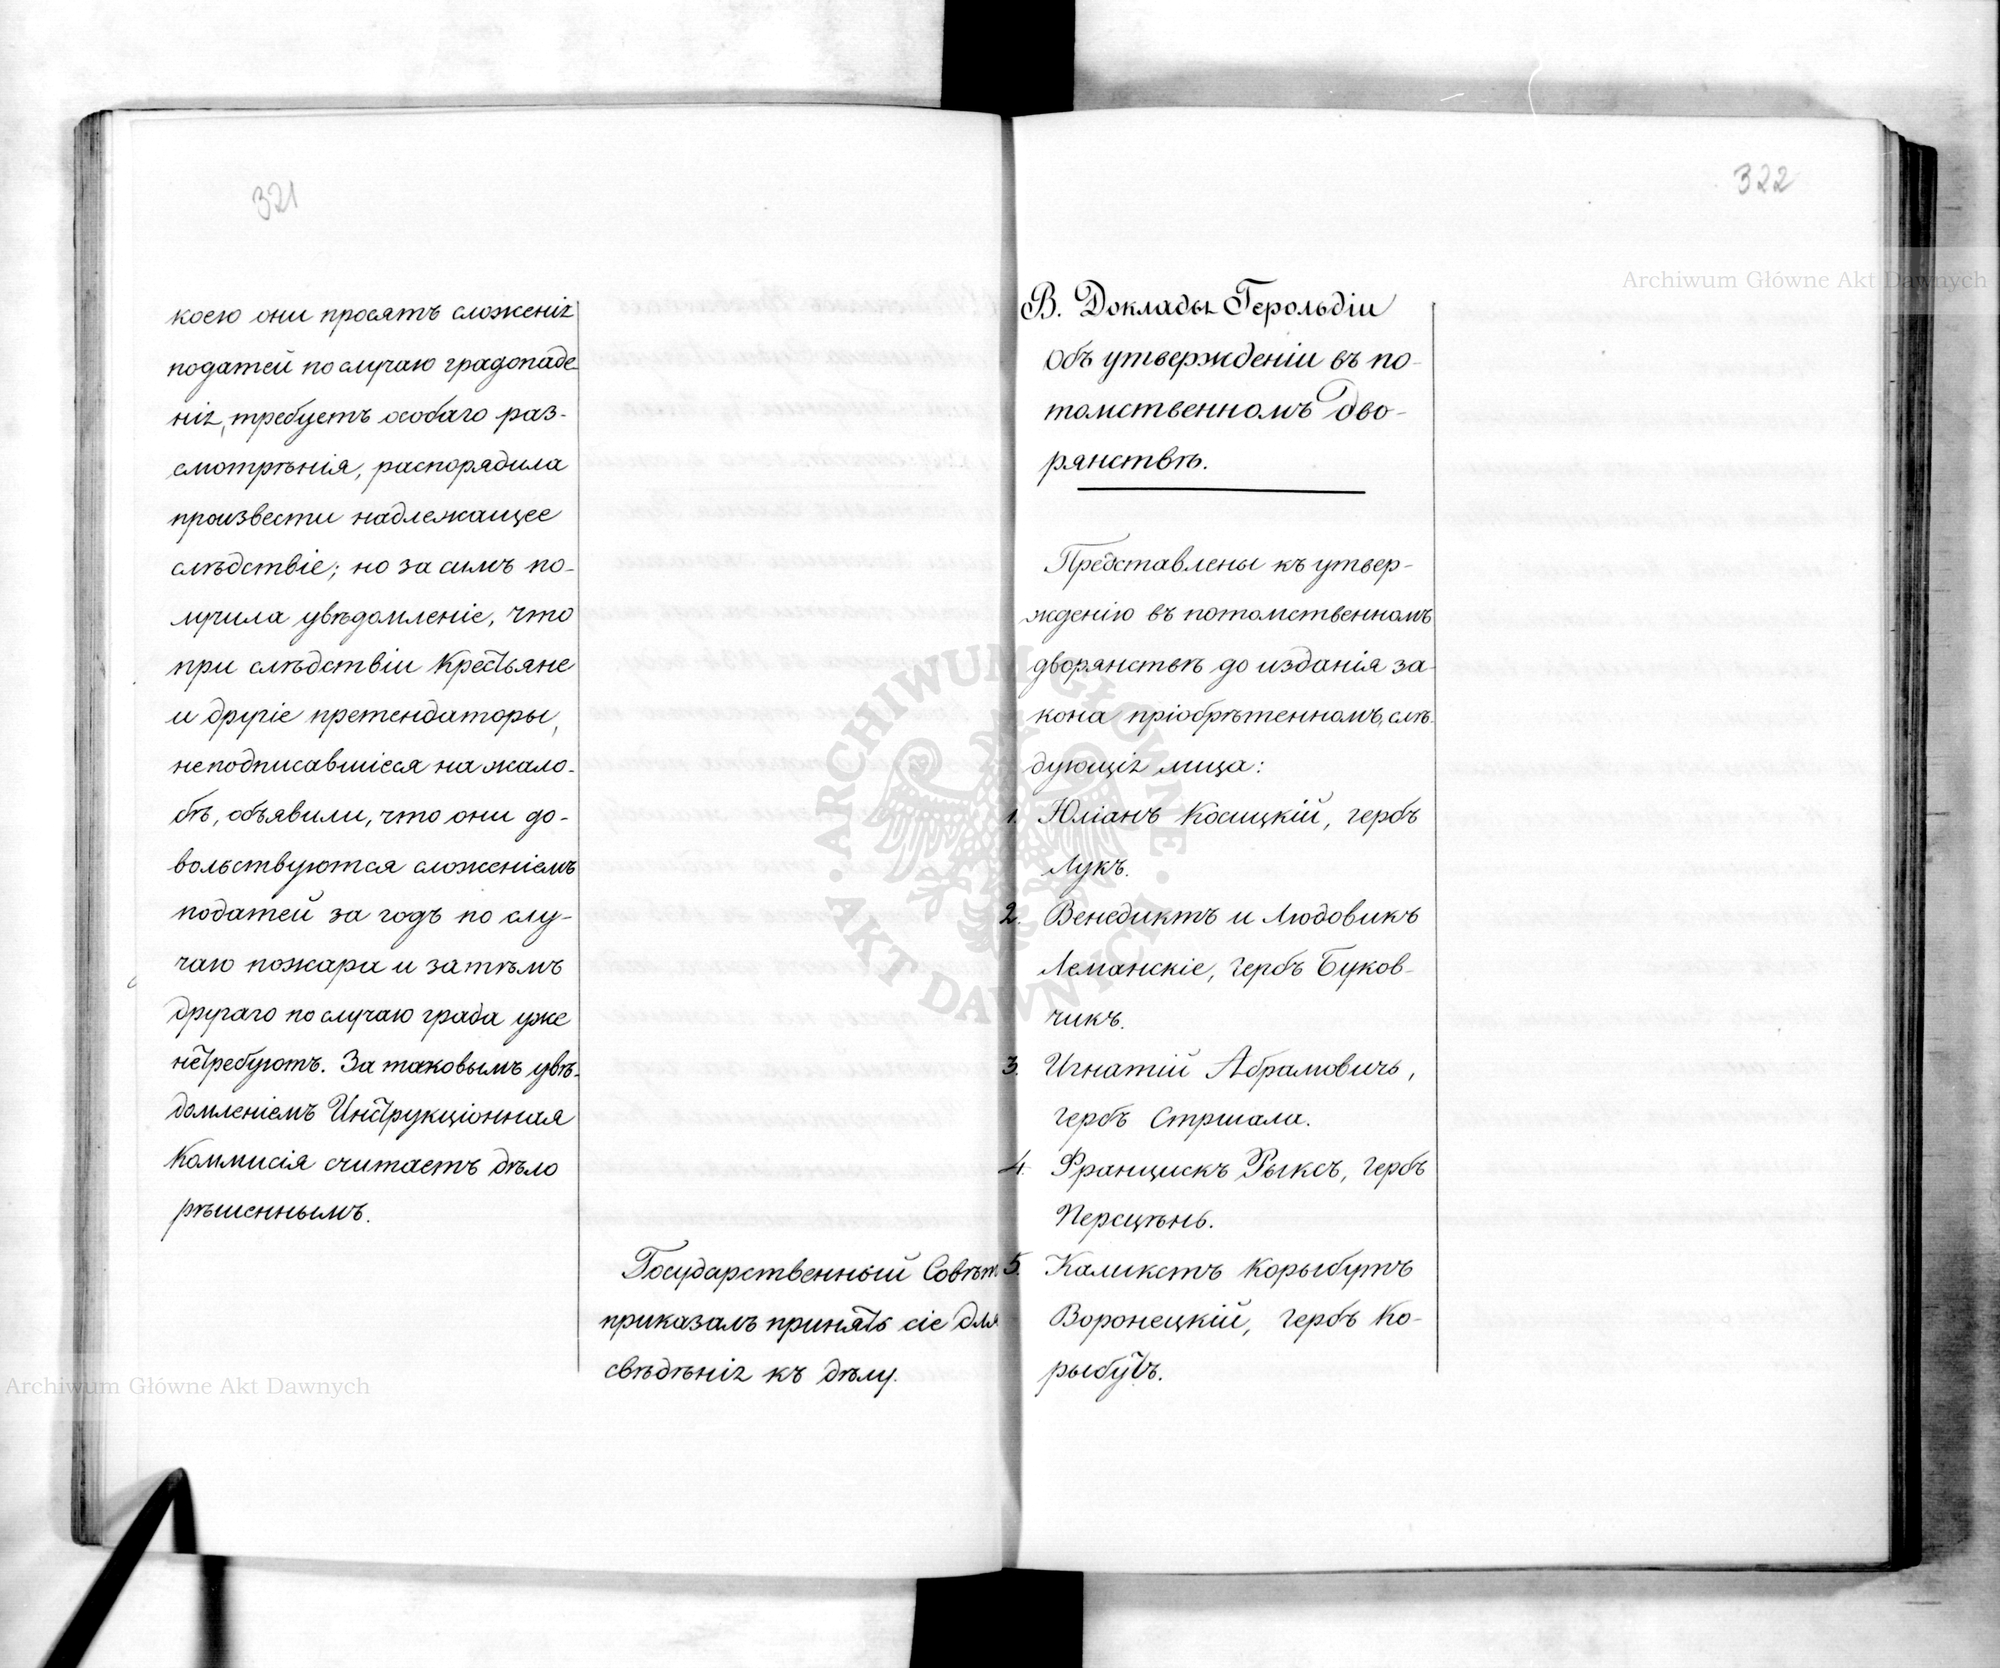 321
коею они просятъ сложенія
податей по случаю градопаде-
нія, требуетъ особаго раз-
смотрѣнія, распорядила
произвести надлежащее
слѣдствіе; но за симъ по-
лучила увѣдомленіе, что
при слѣдствіи Крестьяне
и другіе претендаторы,
неподписавшіеся на жало-
бѣ, объявили, что они до-
вольствуются сложеніемъ
податей за годъ по слу-
чаю пожара и затѣмъ
другаго по случаю града уже
нетребуютъ. За таковымъ увѣ-
домленіемъ Инструкціонная
Коммисія считаетъ дѣло
рѣшеннымъ.
Государственный Совѣтъ
приказалъ принять сіе для
свѣдѣнія къ дѣлу.
322
В. Доклады Герольдіи
Объ утвержденіи въ по-
томственномъ дво-
рянствѣ.
Представлены къ утвер-
жденію въ потомственномъ
дворянствѣ до изданія за-
кона пріобрѣтенномъ, слѣ-
дующія лица:
1. Юліанъ Косицкій, гербъ
Лукъ.
2. Венедиктъ и Людовикъ
Леманскіе, гербъ Буков-
чикъ.
3. Игнатій Абрамовичъ,
гербъ Стршала.
4. Францискъ Рыксъ, гербъ
Персцѣнь.
5. Каликстъ Корыбутъ
Воронецкій, гербъ Ко-
рыбутъ.
Archiwum Główne Akt Dawnych
Archiwum Główne Akt Dawnych
ARCHIWUM GŁÓWNE
AKT DAWNYCH